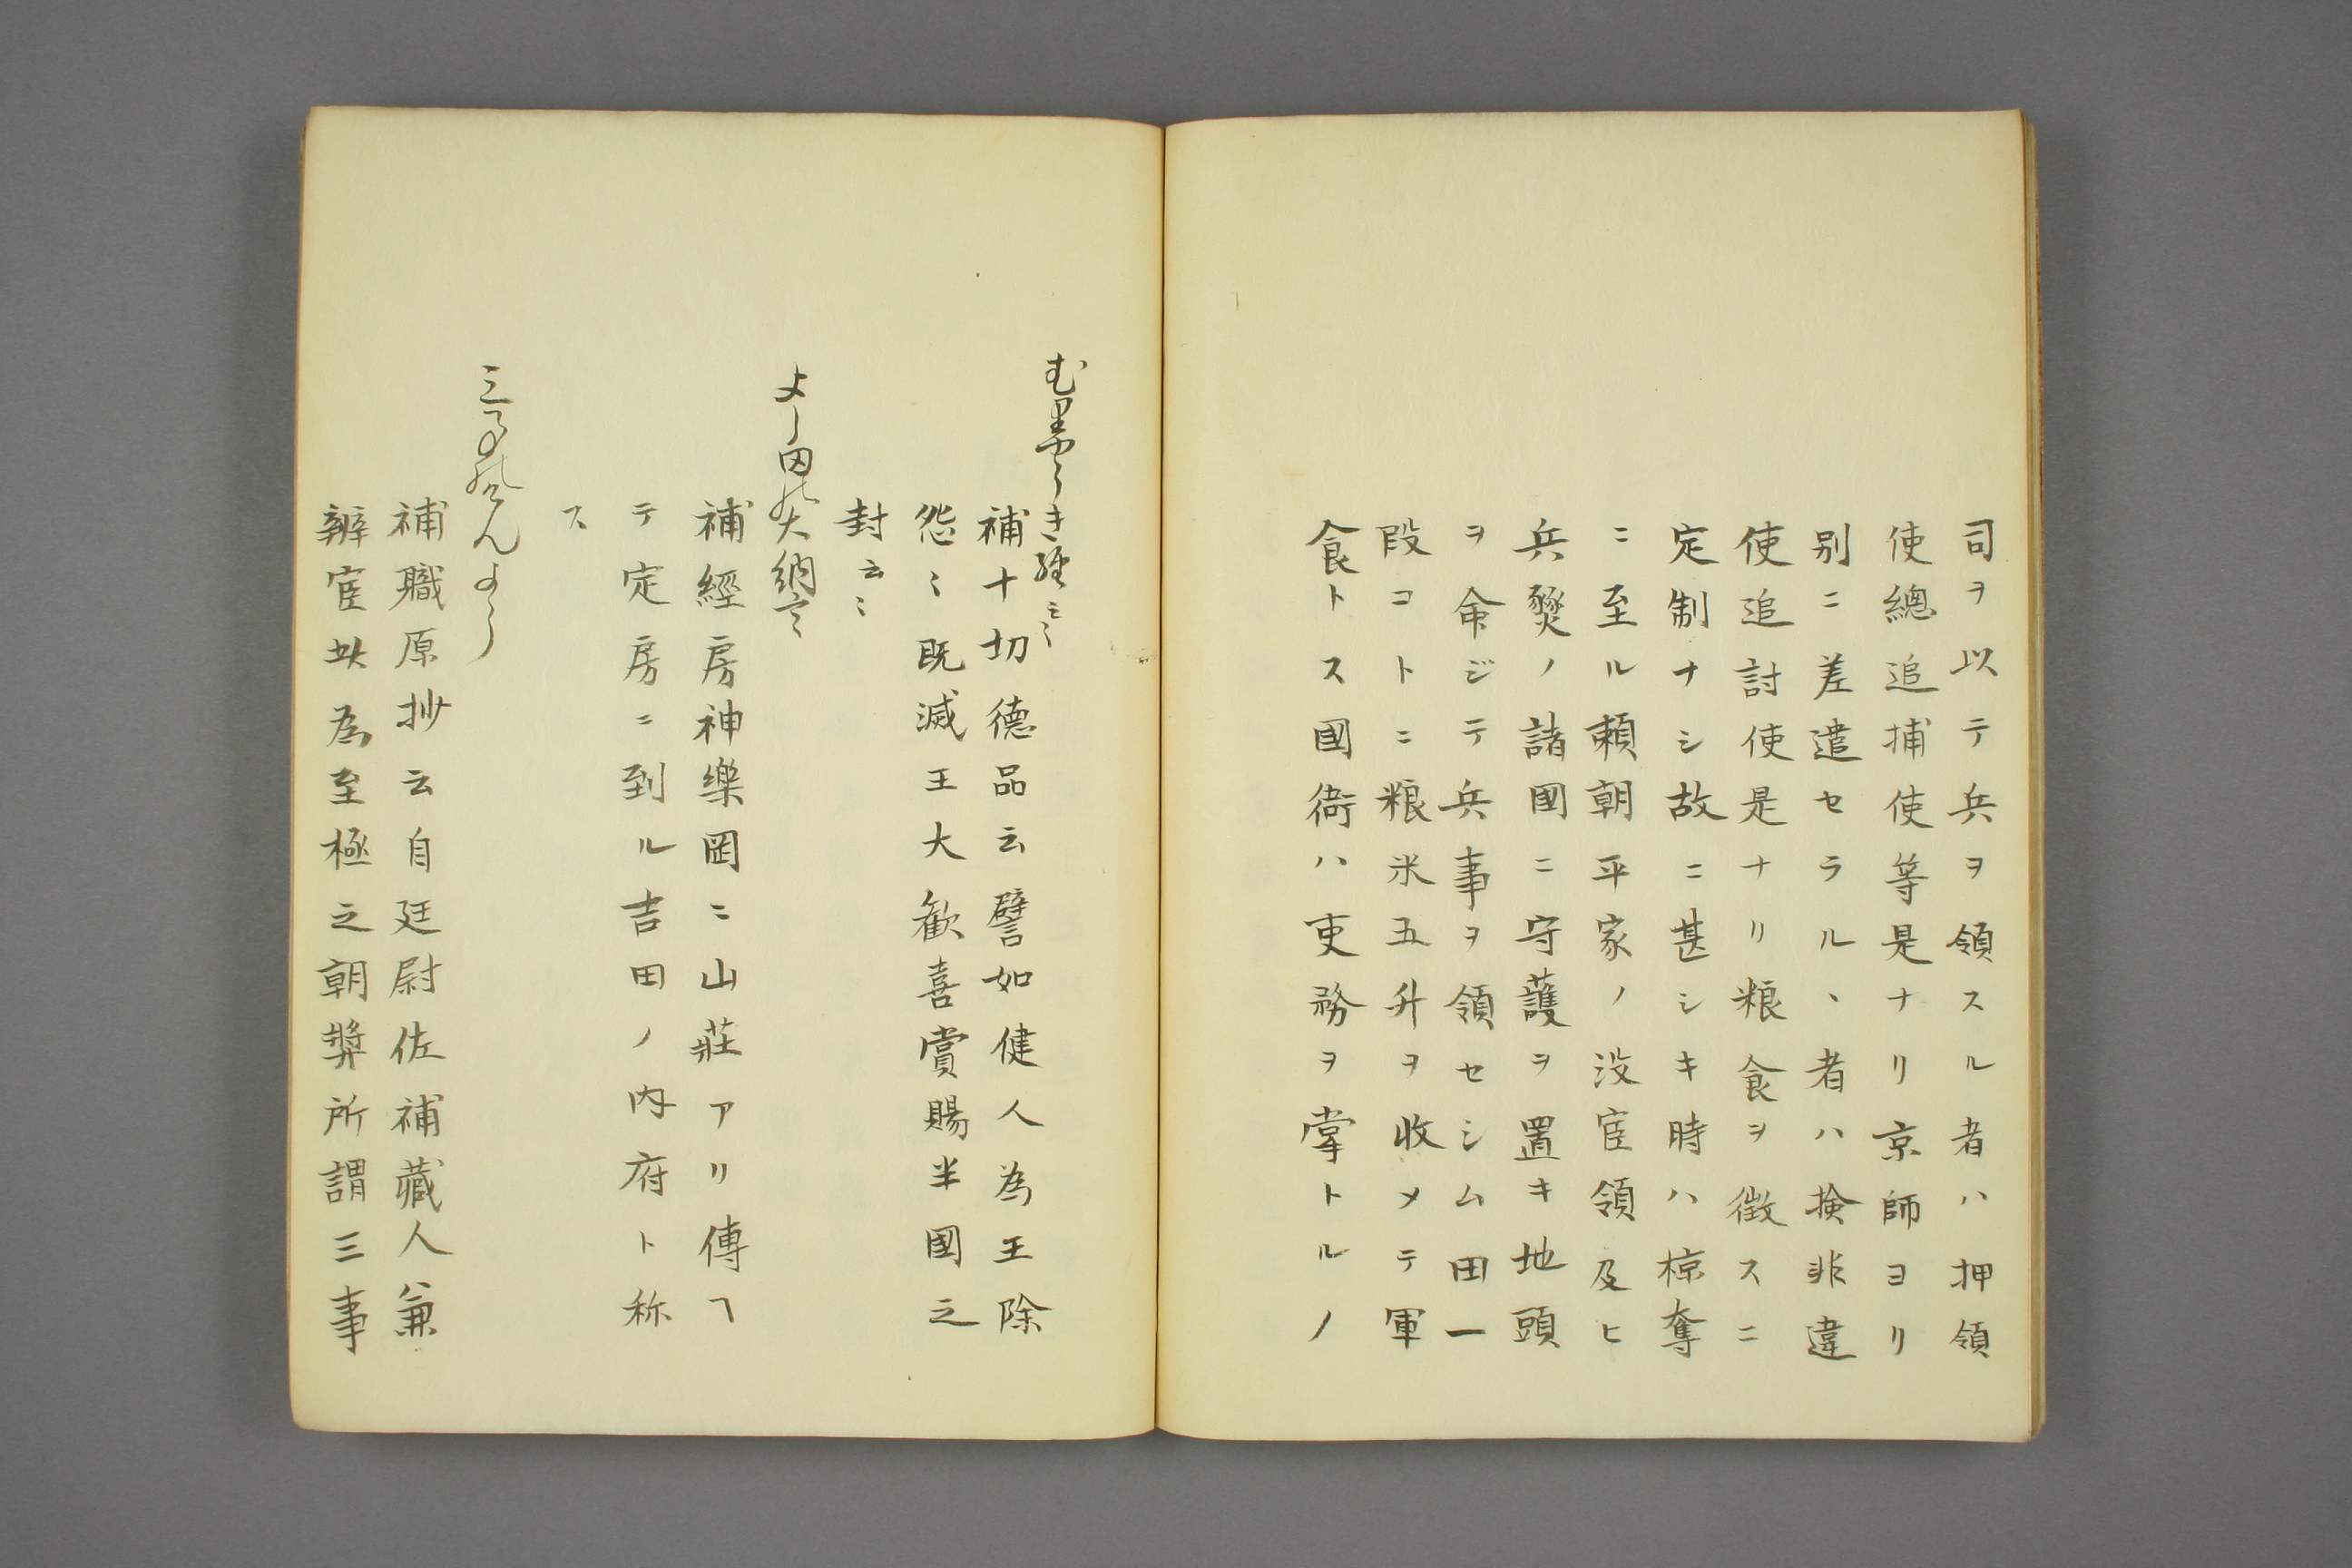 司ヲ以テ兵ヲ領スル者ハ押領
使總追捕使等是ナリ京師ヨリ
別ニ差遣セラルヽ者ハ検非違
使追討使是ナリ粮食ヲ徴スニ
定制ナシ故ニ甚シキ時ハ椋奪
ニ至ル頼朝平家ノ没官領及ヒ
兵燹ノ諸國ニ守護ヲ置キ地頭
ヲ命ジテ兵事ヲ領セシム田一
段コトニ粮米五升ヲ收メテ軍
食トス國衙ハ吏務ヲ掌トルノ
む里やうき経云〻
補十切徳品云譬如健人為王除
怨〻既滅王大歓喜賞賜半國之
封云〻
よし田の大納言
補經房神樂岡ニ山莊アリ傳ヘ
テ定房ニ到ル吉田ノ内府ト称
ス
補職原抄云自廷尉佐補藏人兼
辨官以為至極之朝奨所謂三事